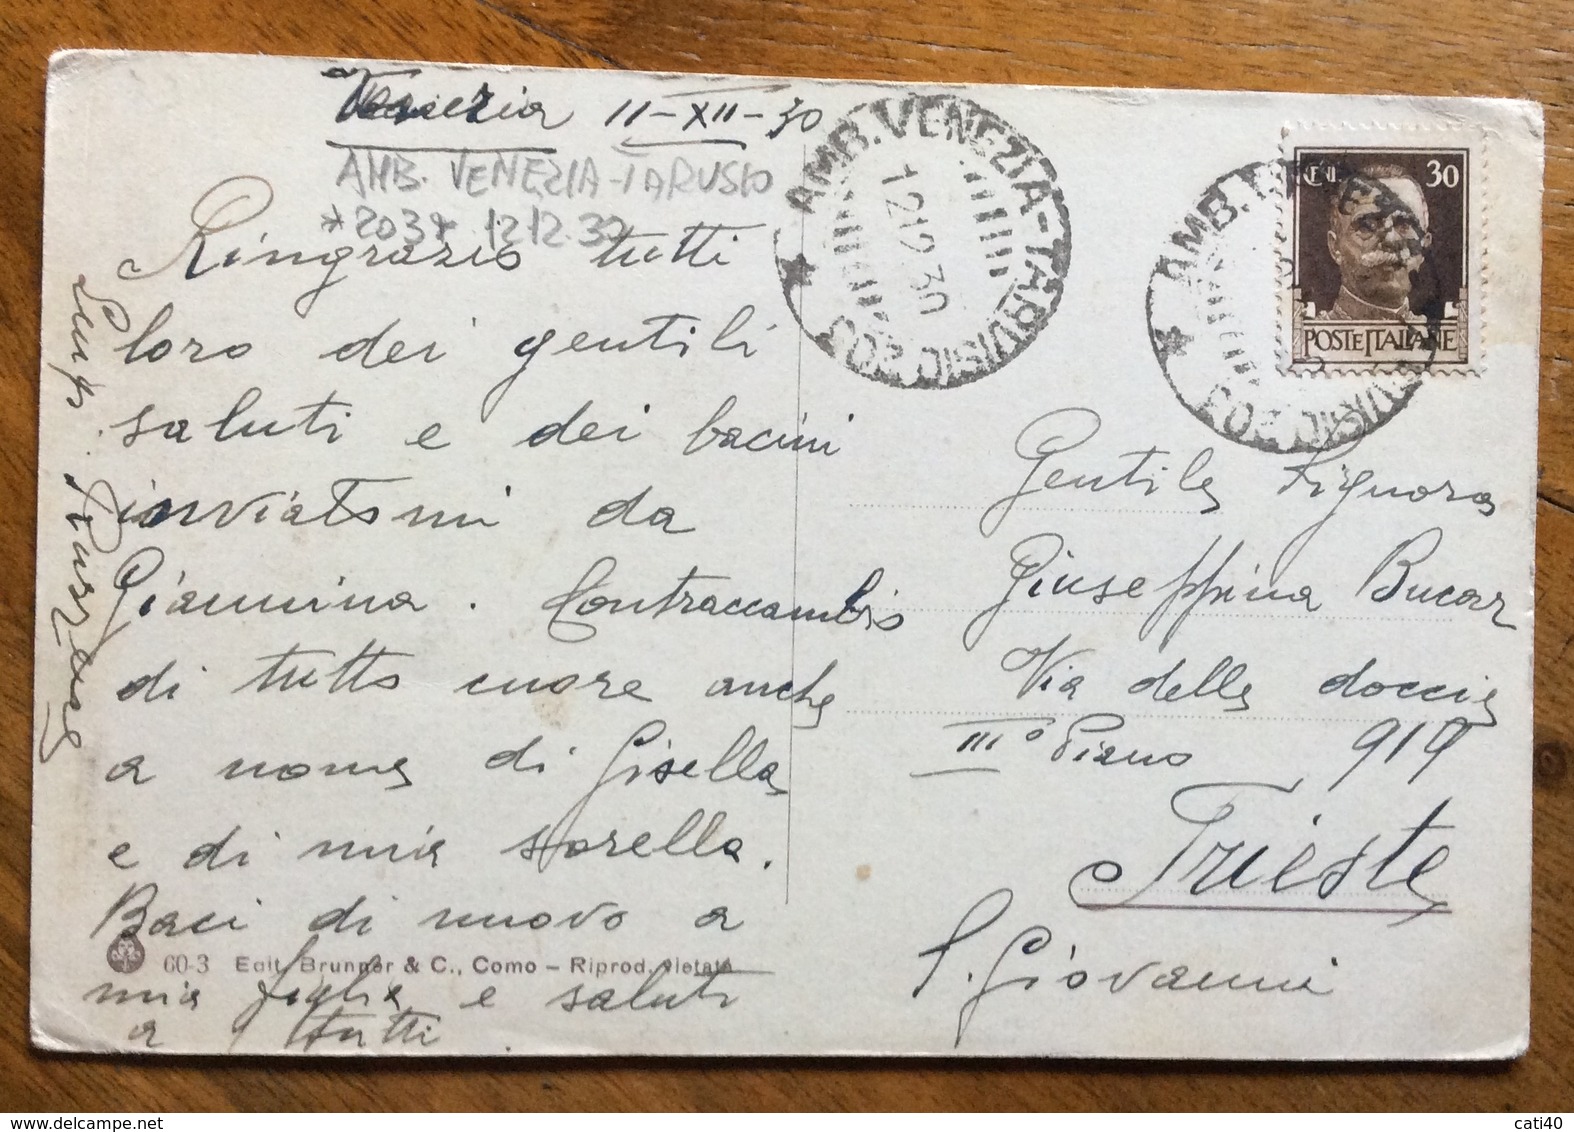 Venezia 11-XII-30
AMB. VENEZIA-TARVISIO
*203* 12.12.30
Ringrazio tutti
loro dei gentili
saluti e dei bacini
inviatomi da
Giannina. Contraccambio
di tutto cuore anche
a nome di Gisella
e di mia sorella.
Baci di nuovo a
mia figlia e saluti
a tutti.
60-3 Edit. Brunner & C., Como – Riprod. vietata
AMB. VENEZIA-TARVISIO 203
12 12 30
AMB. VENEZIA-TARVISIO 203
CENT. 30
POSTE ITALIANE
Gentile Signora
Giuseppina Bucar
Via della doccia
III° Piano 919
Trieste
S. Giovanni
cati40